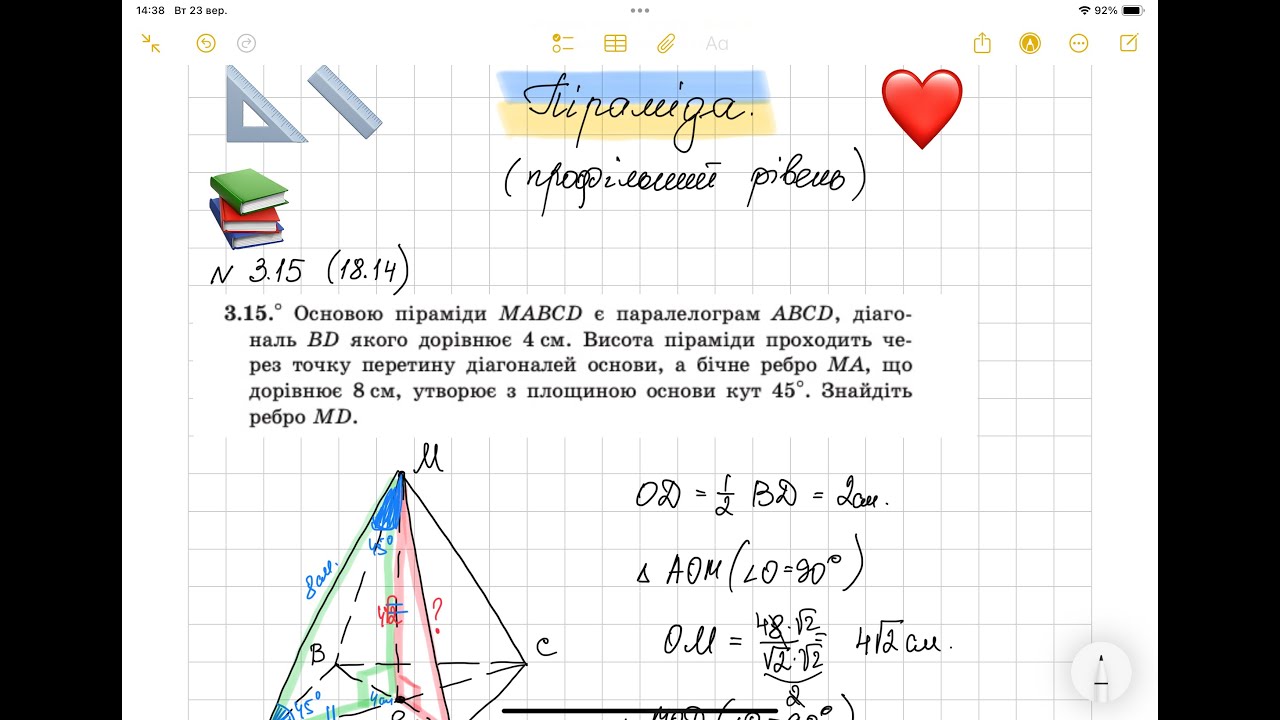 14:38 Вт 23 вер.
92%
Aa
Піраміда.
(профільний рівень)
N 3.15 (18.14)
3.15.° Основою піраміди MABCD є паралелограм ABCD, діаго-
наль BD якого дорівнює 4 см. Висота піраміди проходить че-
рез точку перетину діагоналей основи, а бічне ребро MA, що
дорівнює 8 см, утворює з площиною основи кут 45°. Знайдіть
ребро MD.
M
OD = 1/2 BD = 2см.
45°
8см.
Δ AOM (∠O=90°)
4√2
?
OM = 48·√2 / √2·√2 = 4√2 см.
2
B
C
45°
4см